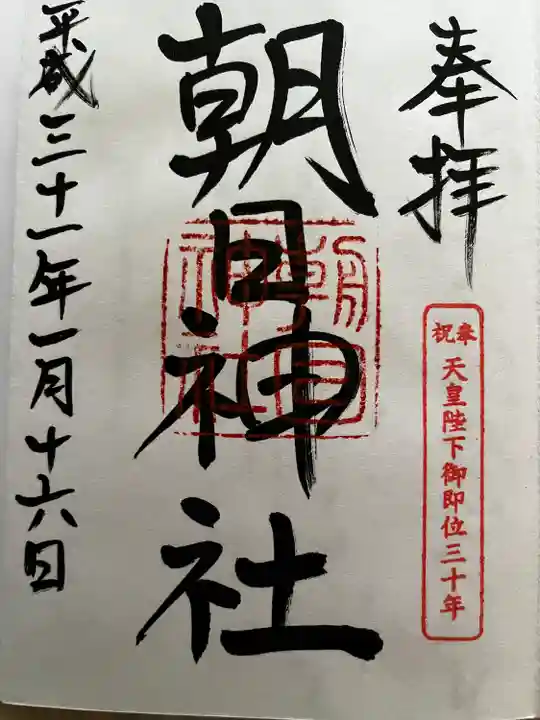 奉拝
奉祝
天皇陛下御即位三十年
朝日神社
朝日
神社
平成三十一年一月十六日